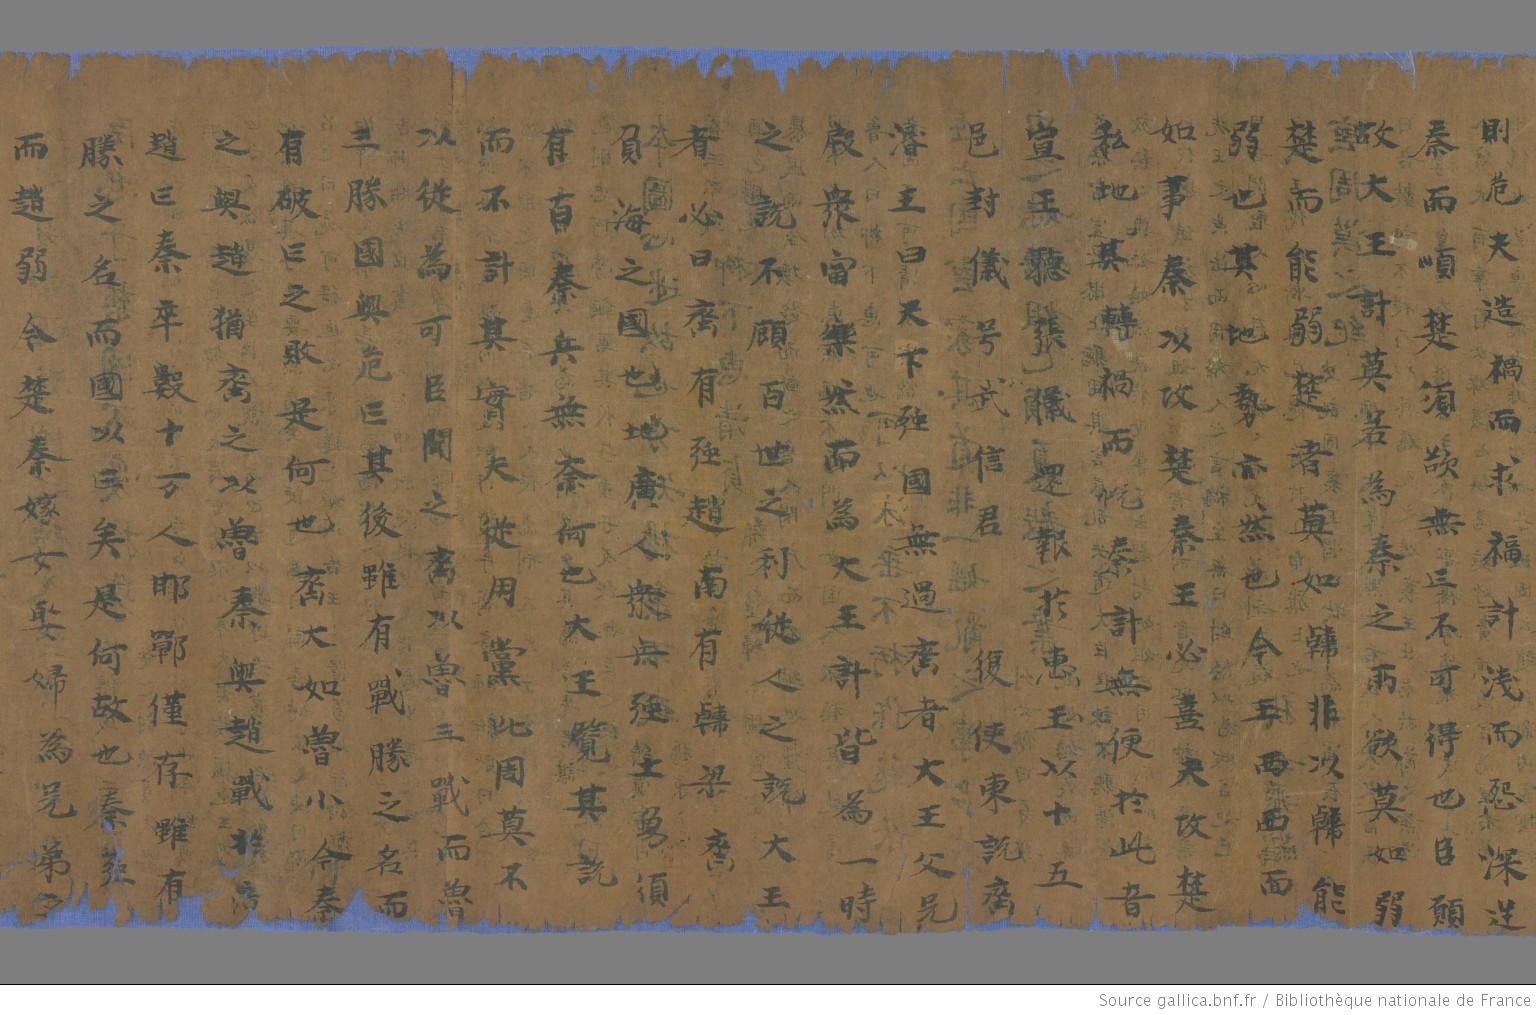 則危夫造禍而求福計淺而怨深逆
秦而順楚須欲無亡不可得也臣願
故大王計莫若為秦之所欲莫如弱
楚而能弱楚者莫如韓非以韓能
弱也其地勢亦然也今王西面
如事秦以攻楚秦王必善夫攻楚
私地其轉禍而悅秦計無便於此者
宣王聽張儀還報於惠王以十五
邑封儀号武信君復使東說齊
湣王曰天下強國無過齊者大王父兄
殷衆富樂然而為大王計皆為一時
之說不顧百世之利從人之說大王
者必曰齊有強趙南有韓梁齊
負海之國也地廣人衆兵強士勇須
有百秦兵無奈何也大王覽其說
而不計其實夫從用黨比周莫不
以從為可臣聞之齊以魯三戰而魯
三勝國興危亡其後雖有戰勝之名而
有破亡之敗是何也齊大如魯小今秦
之與趙猶齊之以魯秦與趙戰於
趙亡秦卒數十万人邯鄲僅存雖有
勝之名而國以亡矣是何故也秦強
而趙弱今楚秦嫁女娶婦為兄弟之
Source gallica.bnf.fr / Bibliothèque nationale de France